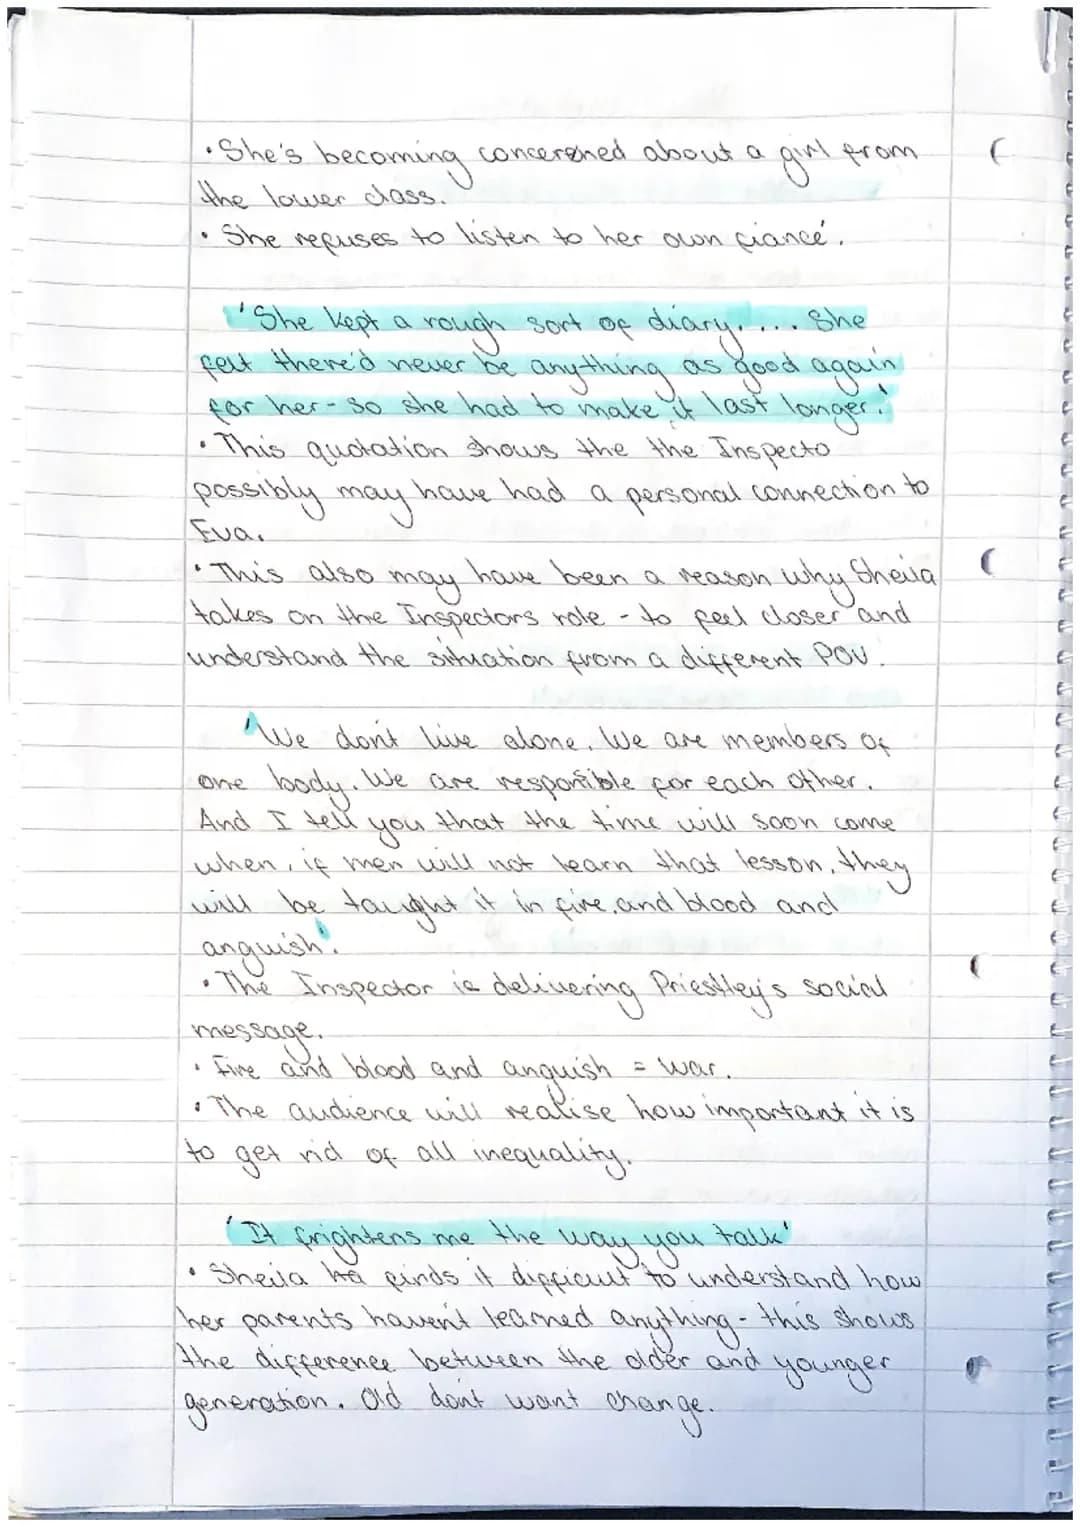 • She's becoming concerened about a girl from
the lower class.
• She refuses to listen to her own fiancé.
'She kept a rough sort of diary. ... She
felt there'd never be anything as good again
for her - so she had to make it last longer.'
• This quotation shows the the Inspecto
possibly may have had a personal connection to
Eva.
• This also may have been a reason why Sheila
takes on the Inspectors role - to feel closer and
understand the situation from a different POV.
'We don't live alone. We are members of
one body. We are responsible for each other.
And I tell you that the time will soon come
when, if men will not learn that lesson, they
will be taught it in fire, and blood and
anguish'.
• The Inspector is delivering Priestley's social
message.
• Fire and blood and anguish = war.
• The audience will realise how important it is
to get rid of all inequality.
'It frightens me the way you talk'
• Sheila finds it difficult to understand how
her parents haven't learned anything - this shows
the difference between the older and younger
generation. Old don't want change.